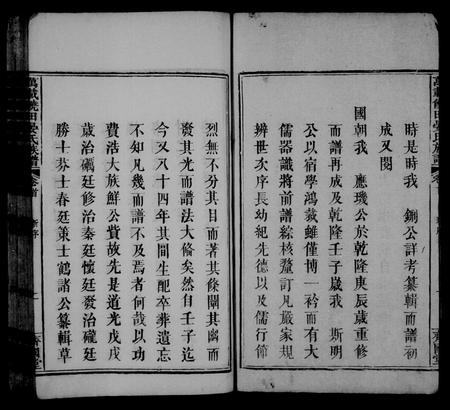 時是時我 錭公詳考纂輯而譜初
成又閱
國朝我 應璣公於乾隆庚辰歲重修
而氏譜再成及乾隆壬子歲我 斯明
公以宿學鴻裁雖僅博一衿而有大
儒器識將前譜綜核釐訂凡嚴家規
辨世次序長幼紀先德以及儒行節
萬載鵝田晏氏族譜 卷首 新序 齊國堂
烈無不分其目而著其條闡其幽而
發其光而譜法大偹矣然自壬子迄
今又八十四年其間生配卒葬遺忘
不知凡幾而譜不及焉者何哉以功
費浩大族鮮公貲故先是道光戊戌
歲治礪廷修治秦廷懷廷發治礲廷
勝十芬士春廷策士鶴諸公纂輯草